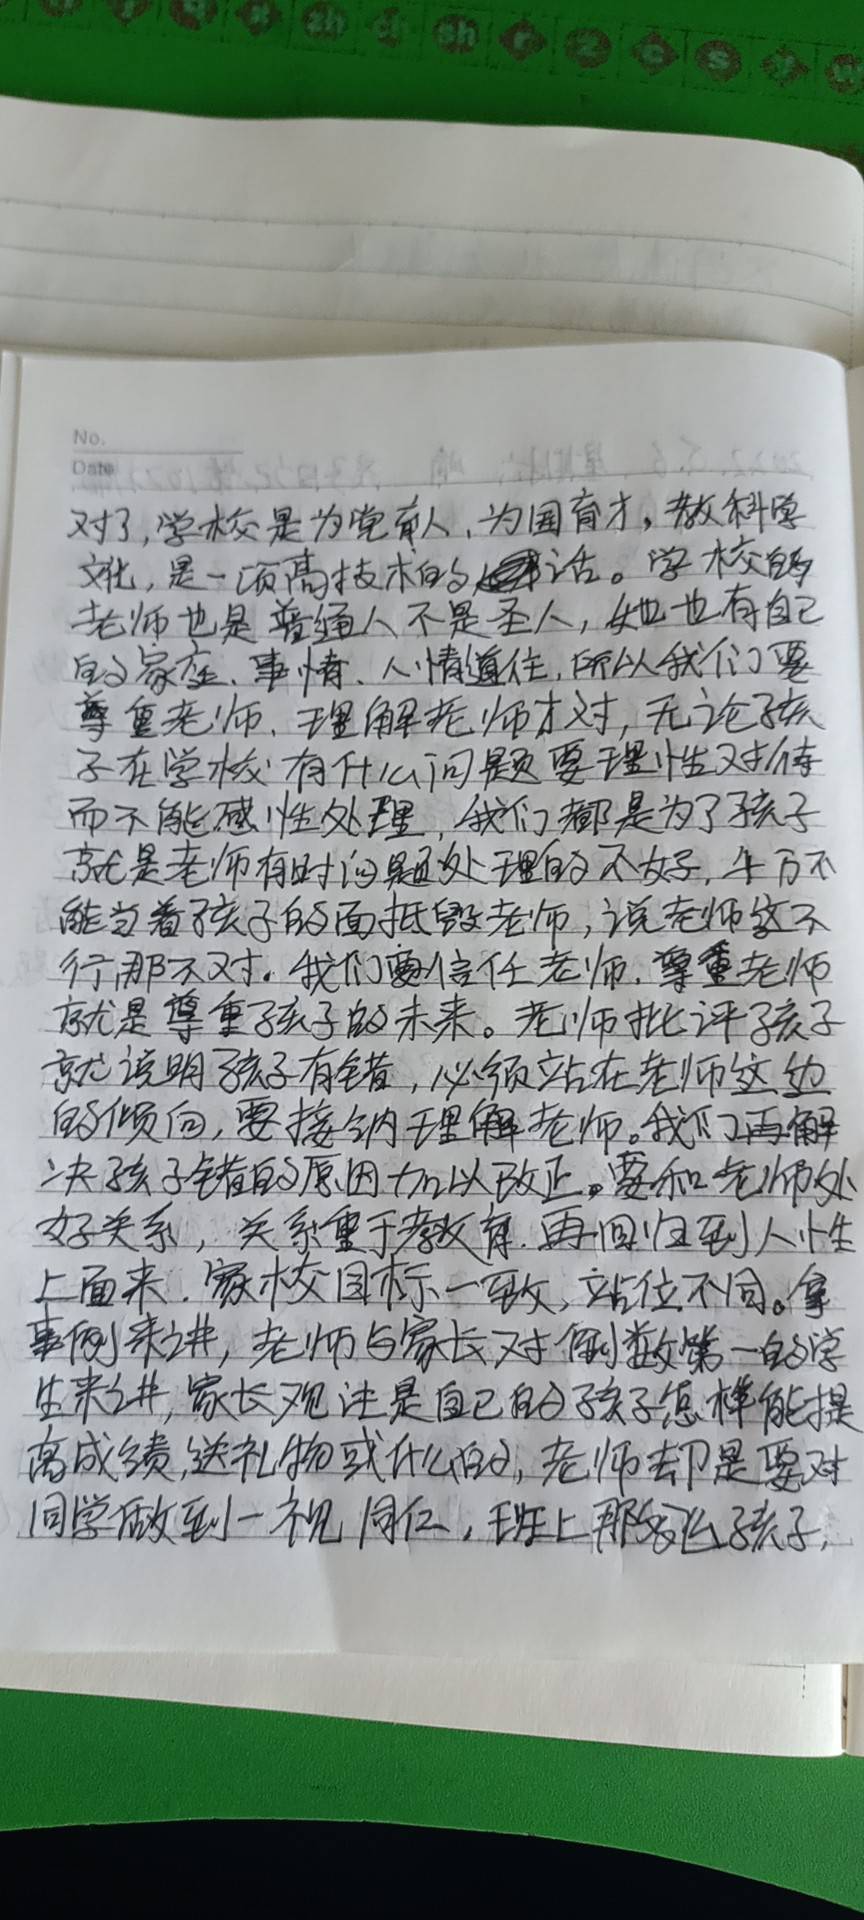 zh ch sh r z c s y w
No.
Date
对了,学校是为党育人、为国育才,教科学
文化,是一项高技术的活。学校的
老师也是普通人不是圣人,她也有自己
的家庭、事情、人情道往,所以我们要
尊重老师、理解老师才对,无论孩
子在学校有什么问题要理性对待
而不能感性处理,我们都是为了孩子
就是老师有时问题处理的不好,千万不
能当着孩子的面抵毁老师,说老师这不
行那不对。我们要信任老师、尊重老师
就是尊重孩子的未来。老师批评孩子
就说明孩子有错,必须站在老师这边
的倾向,要接纳理解老师。我们再解
决孩子错的原因加以改正。要和老师处
好关系,关系重于教育.再回归到人性
上面来.家校目标一致、站位不同。拿
事例来讲,老师与家长对倒数第一的学
生来讲,家长观注是自己的孩子怎样能提
高成绩,送礼物或什么的,老师却是要对
同学做到一视同仁,班上那多么孩子,